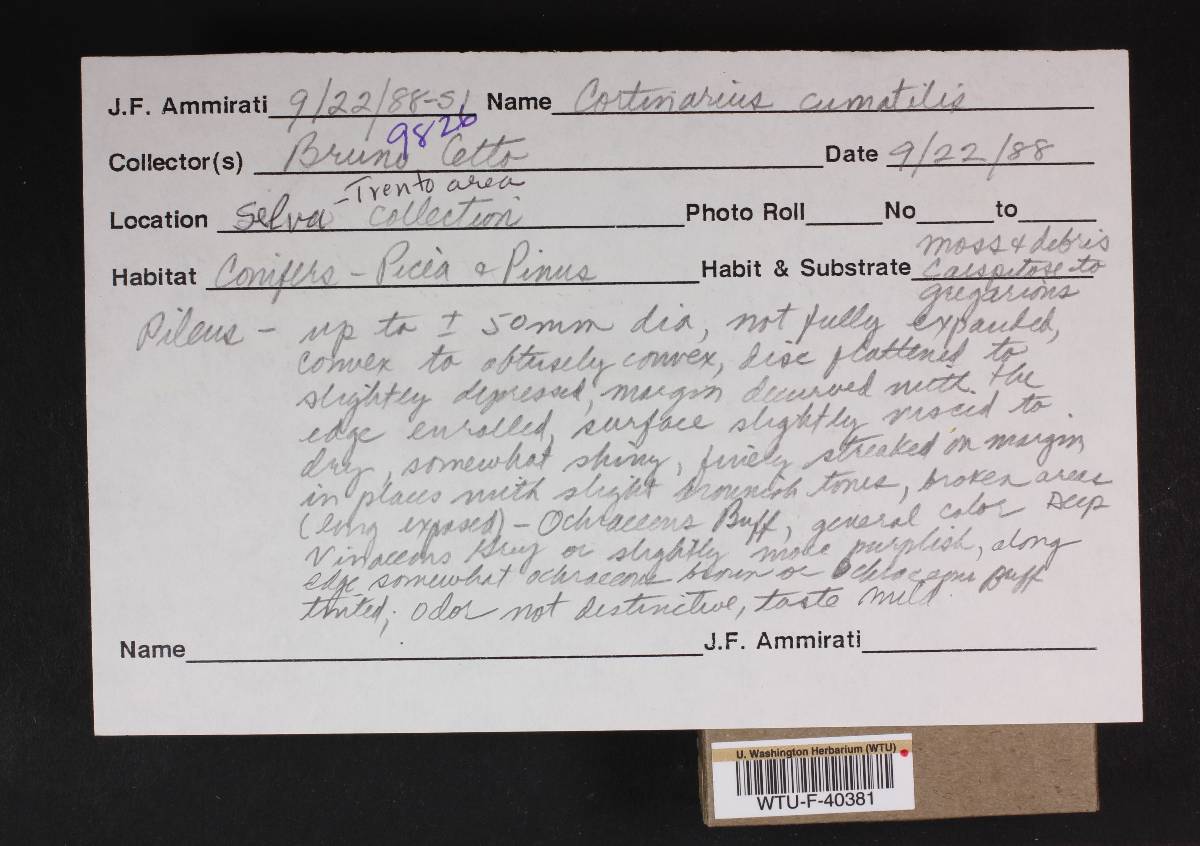 J.F. Ammirati 9/22/88-51 Name Cortinarius cumatilis
9826
Collector(s) Bruno Cetto Date 9/22/88
- Trento area
Location Selva collection Photo Roll No to
moss & debris
Habitat Conifers - Picea & Pinus Habit & Substrate Caespitose to
gregarious
Pileus - up to ± 50mm dia, not fully expanded,
convex to obtusely convex, disc flattened to
slightly depressed, margin decurved with the
edge enrolled, surface slightly viscid to
dry, somewhat shiny, finely streaked on margin
in places with slight brownish tones, broken areas
(long exposed) - Ochraceous Buff, general color Deep
Vinaceous Grey or slightly more purplish, along
edge somewhat ochraceous brown or Ochraceous Buff
tinted; odor not distinctive, taste mild.
Name J.F. Ammirati
U. Washington Herbarium (WTU)
WTU-F-40381